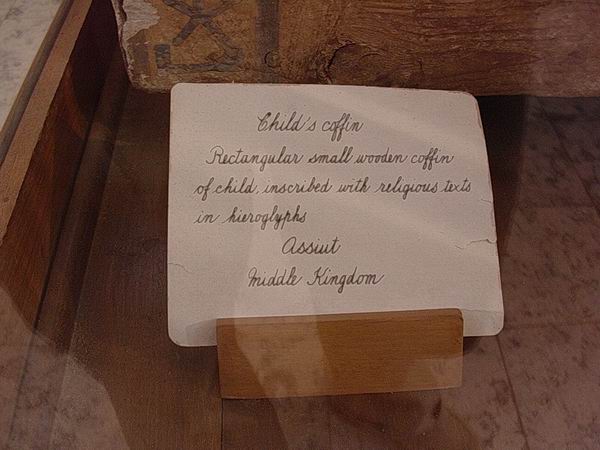 Child's coffin
Rectangular small wooden coffin
of child, inscribed with religious texts
in hieroglyphs
Assiut
Middle Kingdom